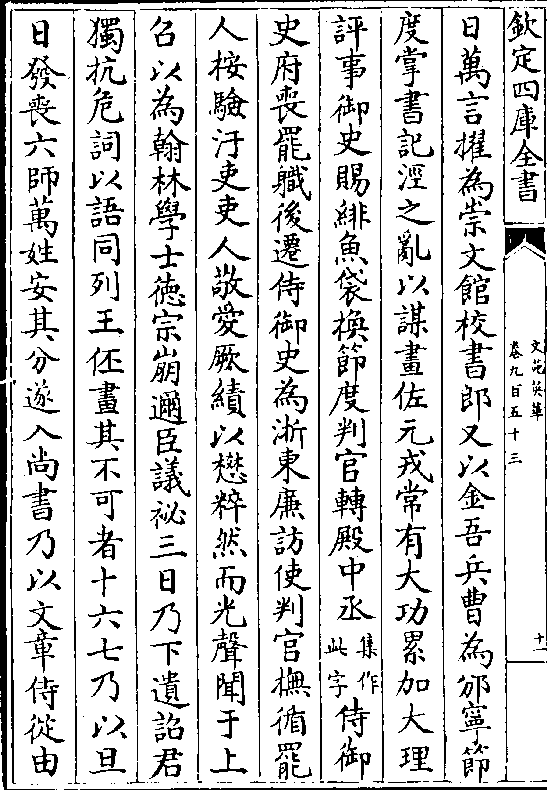 欽定四庫全書
文苑英華
卷九百五十三
十一
日萬言擢為崇文館校書郎又以金吾兵曹為邠寧節
度掌書記涇之亂以謀畫佐元戎常有大功累加大理
評事御史賜緋魚袋換節度判官轉殿中丞集作此字侍御
史府喪罷職後遷侍御史為浙東廉訪使判官撫循罷
人按驗汙吏吏人敬愛厥績以懋粹然而光聲聞于上
召以為翰林學士徳宗崩邇臣議祕三日乃下遺詔君
獨抗危詞以語同列王伾畫其不可者十六七乃以旦
日發喪六師萬姓安其分遂入尚書乃以文章侍從由